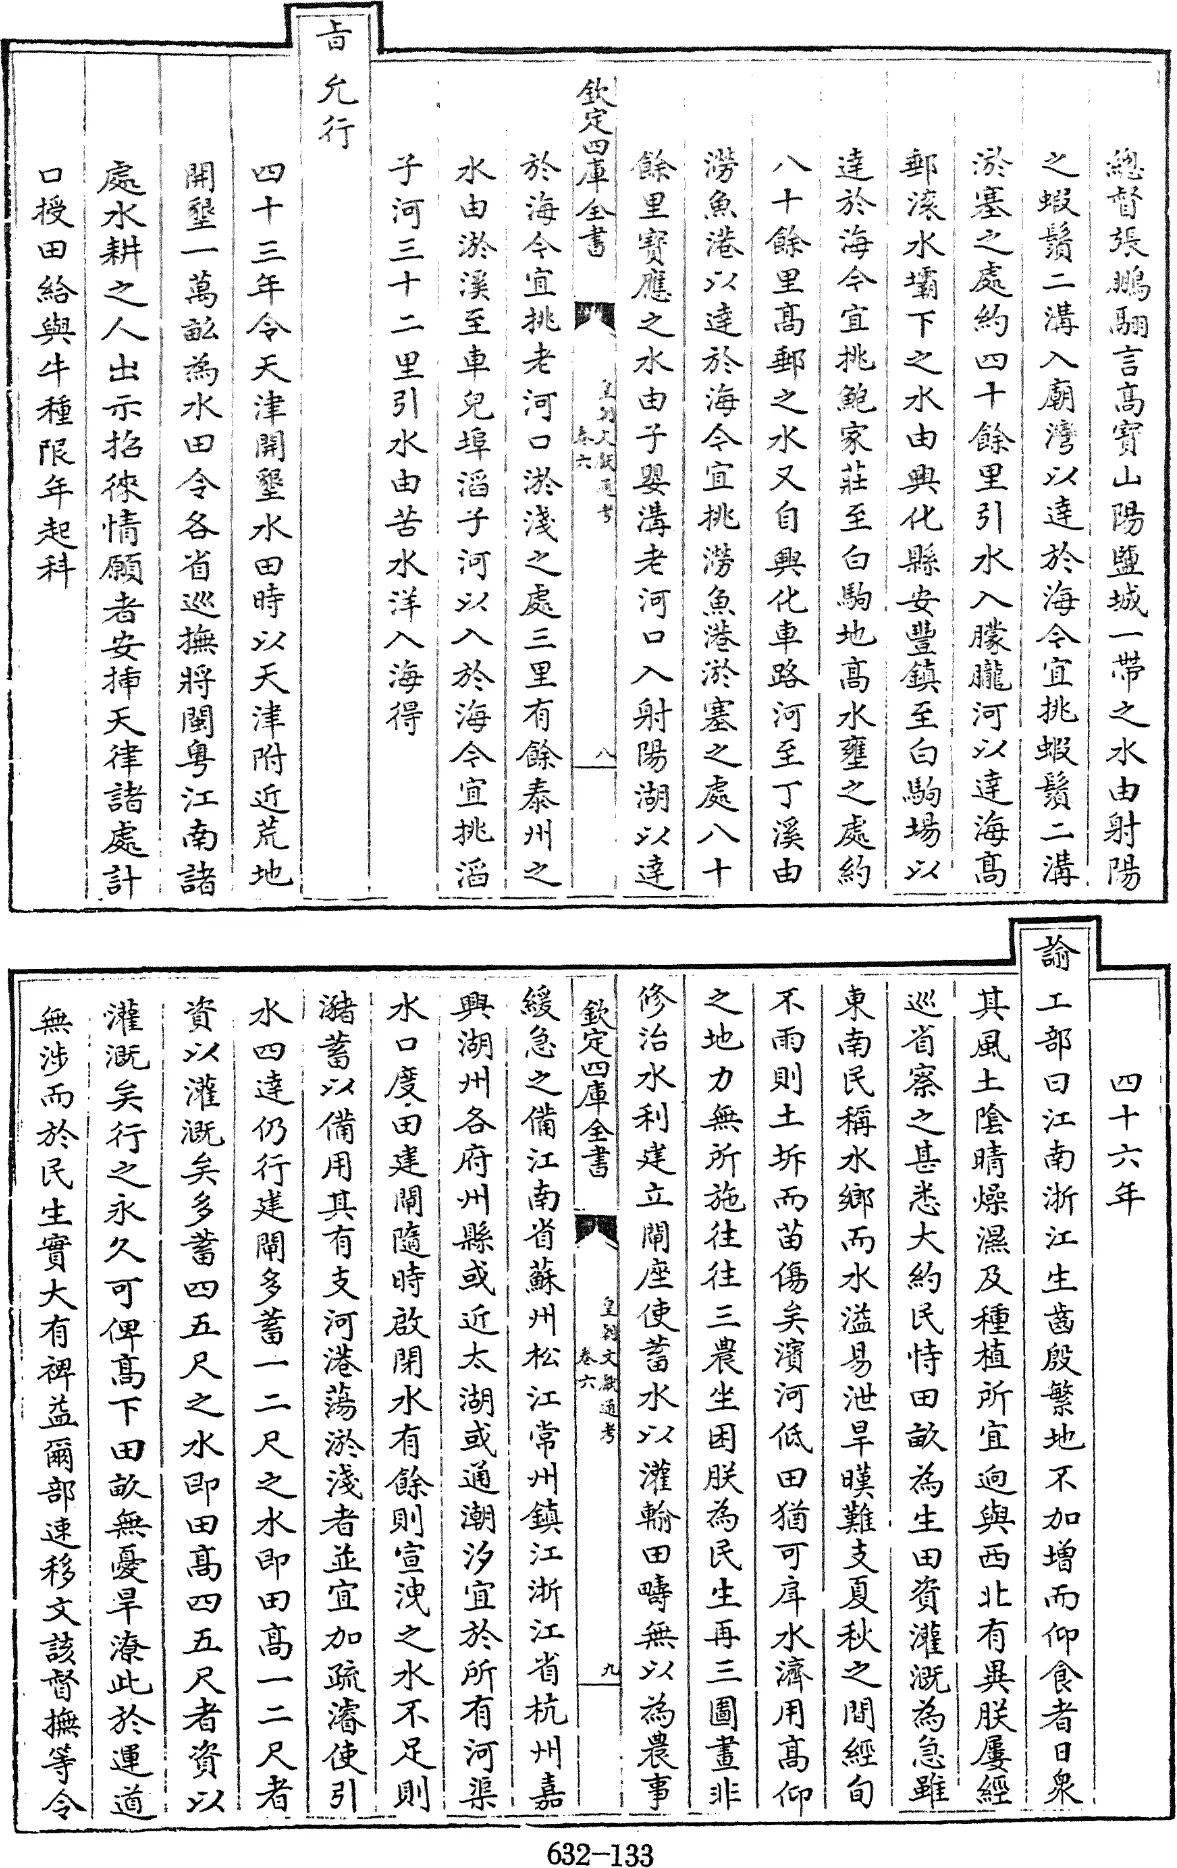 總督張鵬翮言高寳山陽鹽城一帶之水由射陽
之蝦鬚二溝入廟灣以達於海今宜挑蝦鬚二溝
淤塞之處約四十餘里引水入朦朧河以達海高
郵滚水壩下之水由興化縣安豐鎮至白駒場以
達於海今宜挑鮑家莊至白駒地高水壅之處約
八十餘里高郵之水又自興化車路河至丁溪由
澇魚港以達於海今宜挑澇魚港淤塞之處八十
餘里寳應之水由子嬰溝老河口入射陽湖以達
欽定四庫全書
皇朝文獻通考
卷六
八
於海今宜挑老河口淤淺之處三里有餘泰州之
水由淤溪至車兒埠滔子河以入於海今宜挑滔
子河三十二里引水由苦水洋入海得
旨允行
四十三年令天津開墾水田時以天津附近荒地
開墾一萬畝為水田令各省巡撫將閩粤江南諸
處水耕之人出示招徠情願者安揷天律諸處計
口授田給與牛種限年起科
四十六年
諭工部曰江南浙江生齒殷繁地不加增而仰食者日衆
其風土隂晴燥濕及種植所宜逈與西北有異朕屢經
巡省察之甚悉大約民恃田畝為生田資灌溉為急雖
東南民稱水鄉而水溢易泄旱暵難支夏秋之間經旬
不雨則土坼而苗傷矣濱河低田猶可戽水濟用高仰
之地力無所施往往三農坐困朕為民生再三圖畫非
修治水利建立閘座使蓄水以灌輸田疇無以為農事
欽定四庫全書
皇朝文獻通考
卷六
九
緩急之備江南省蘇州松江常州鎮江浙江省杭州嘉
興湖州各府州縣或近太湖或通潮汐宜於所有河渠
水口度田建閘隨時啟閉水有餘則宣洩之水不足則
瀦蓄以備用其有支河港蕩淤淺者並宜加疏濬使引
水四達仍行建閘多蓄一二尺之水即田高一二尺者
資以灌溉矣多蓄四五尺之水即田高四五尺者資以
灌溉矣行之永久可俾高下田畝無憂旱潦此於運道
無涉而於民生實大有裨益爾部速移文該督撫等令
632-133